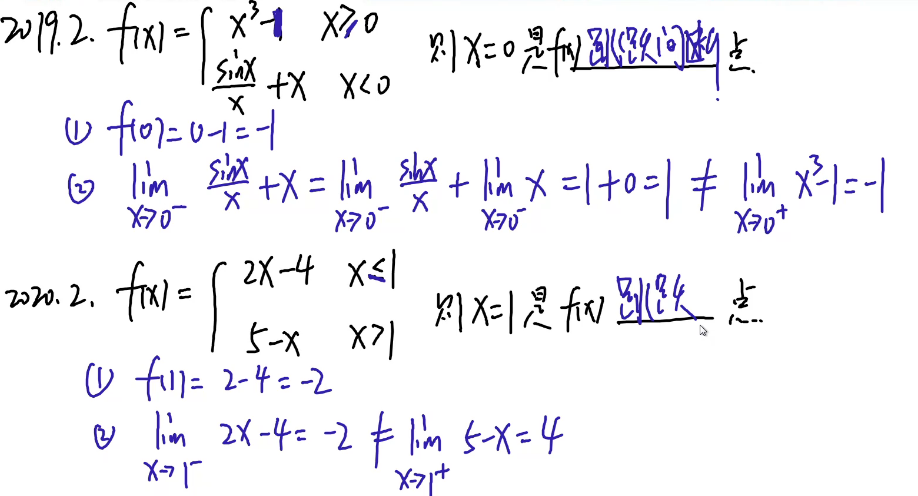 2019.2. f(x) = { x³-1 x≥0
sinx/x + x x<0 则 x=0 是 f(x) 跳跃间断 点
① f(0) = 0-1 = -1
② lim x→0⁻ sinx/x + x = lim x→0⁻ sinx/x + lim x→0⁻ x = 1+0 = 1 ≠ lim x→0⁺ x³-1 = -1
2020.2. f(x) = { 2x-4 x≤1
5-x x>1 则 x=1 是 f(x) 跳跃 点
① f(1) = 2-4 = -2
② lim x→1⁻ 2x-4 = -2 ≠ lim x→1⁺ 5-x = 4